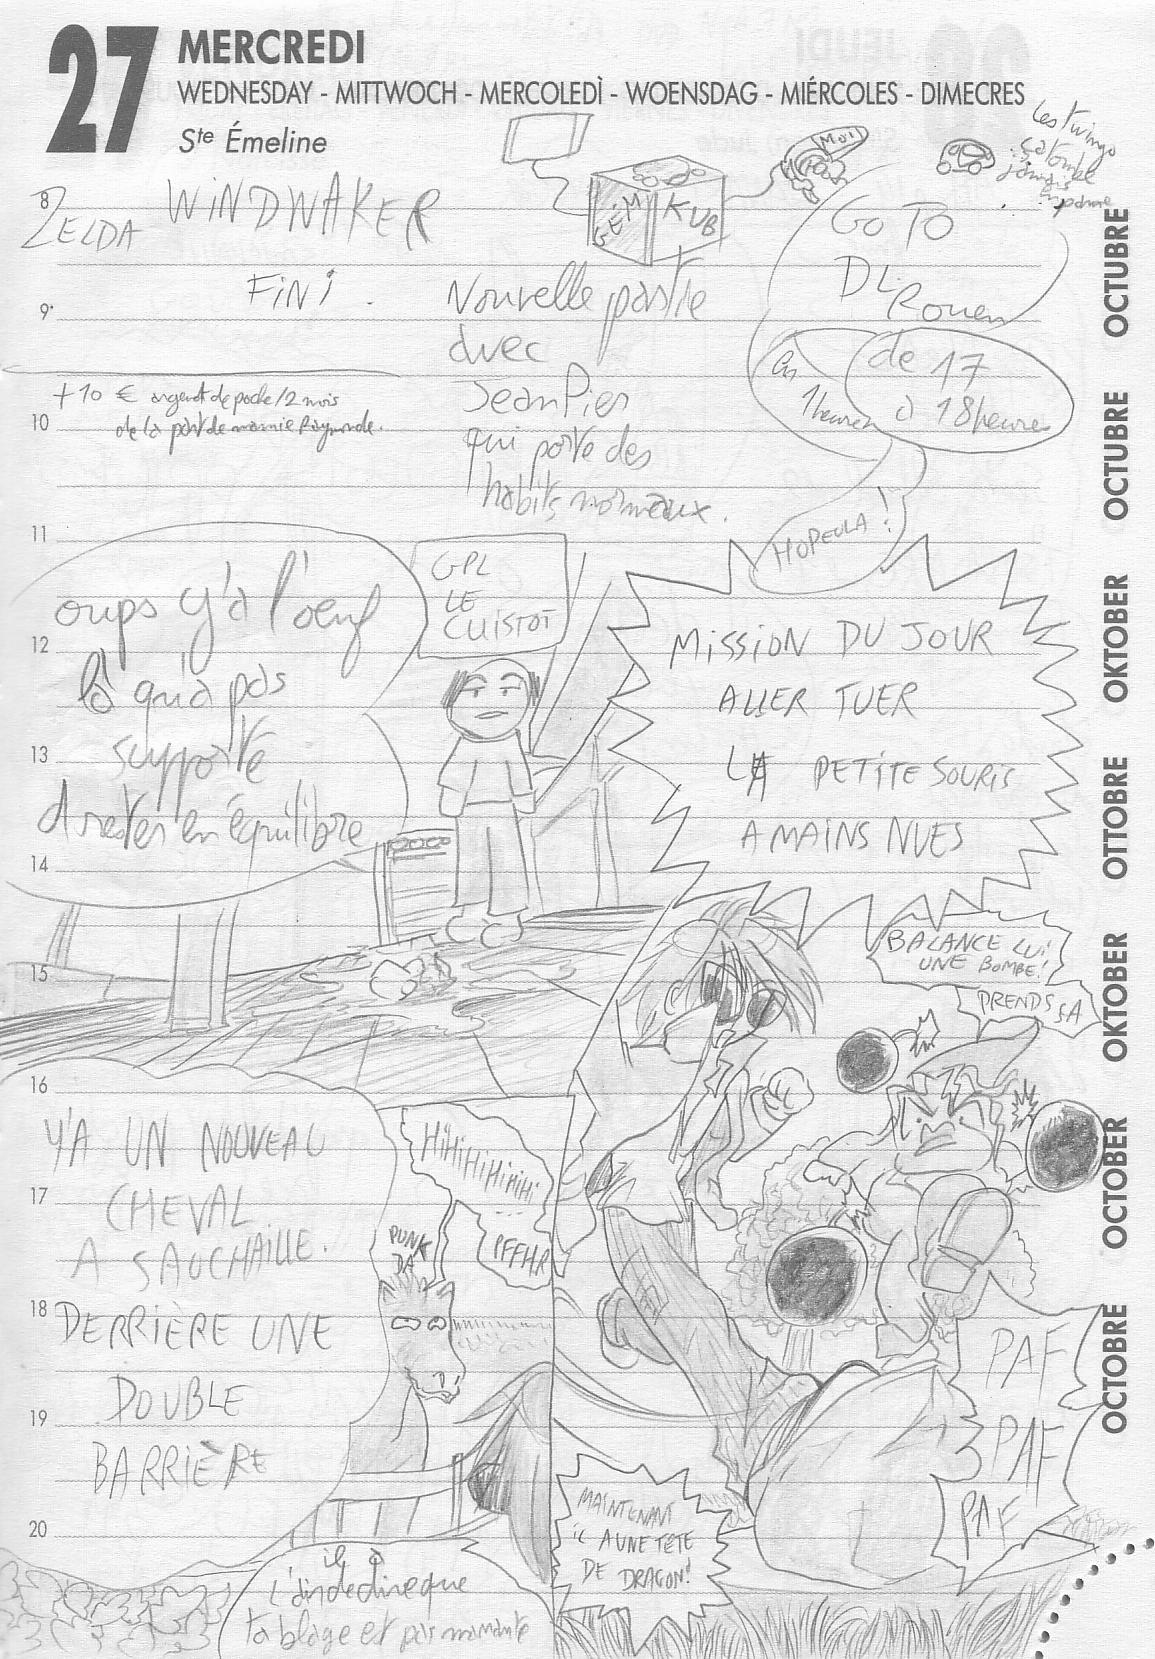 27 MERCREDI
WEDNESDAY - MITTWOCH - MERCOLEDÌ - WOENSDAG - MIÉRCOLES - DIMECRES
Ste Émeline
Les twingo
ça tombe
jamais
en panne
MOI
GÉM KUB
8
ZELDA WINDWAKER
FINI.
9
+10 € argent de poche/2 mois
de la part de mamie Raymonde.
10
Nouvelle partie
avec
JeanPier
qui porte des
habits normaux.
GO TO
DL
Rouen
en
1 heure
de 17
à 18 heures
HOPEULA!
11
oups y'a l'oeuf
là qu'a pas
supporté
d'rester en équilibre
12
13
14
GPL
LE
CUISTOT
MISSION DU JOUR
ALLER TUER
LA PETITE SOURIS
A MAINS NUES
BALANCE LUI
UNE BOMBE!
PRENDS SA
15
16
Y'A UN NOUVEAU
CHEVAL
A SAUCHAILLE.
DERRIÈRE UNE
DOUBLE
BARRIÈRE
17
18
19
20
HiHiHiHiHiHi
PFFHR
PUNK
DA
il a
l'air de dire que
ta blague est pas marrante
MAINTENANT
IL A UNE TÊTE
DE DRAGON!
PAF
PAF
PAF
OCTUBRE
OCTUBRE
OKTOBER
OTTOBRE
OKTOBER
OCTOBER
OCTOBRE